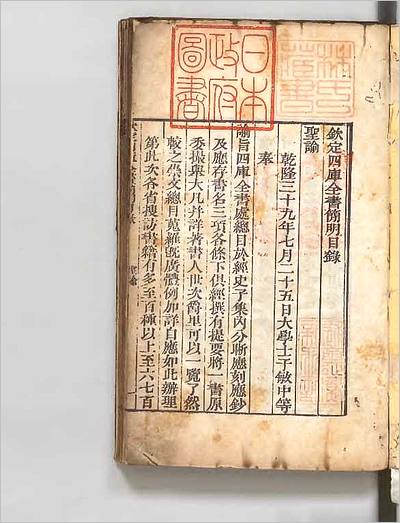 欽定四庫全書簡明目錄
聖諭
乾隆三十九年七月二十五日大學士于敏中等
奉
諭旨四庫全書處總目於經史子集內分晰應刻應鈔
及應存書名三項各條下俱經撰有提要將一書原
委撮舉大凡并詳著書人世次爵里可以一覽了然
較之崇文總目蒐羅旣廣體例加詳自應如此辦理
第此次各省搜訪書籍有多至百種以上至六七百
日本
政府
圖書
林氏
藏書